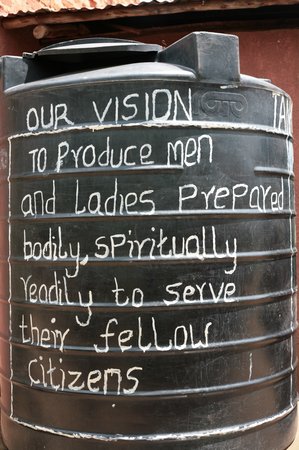 OUR VISION
TO PRODUCE MEN
and LADIES PREPARED
bodily, SPiritually
readily to serve
their fellow
citizens